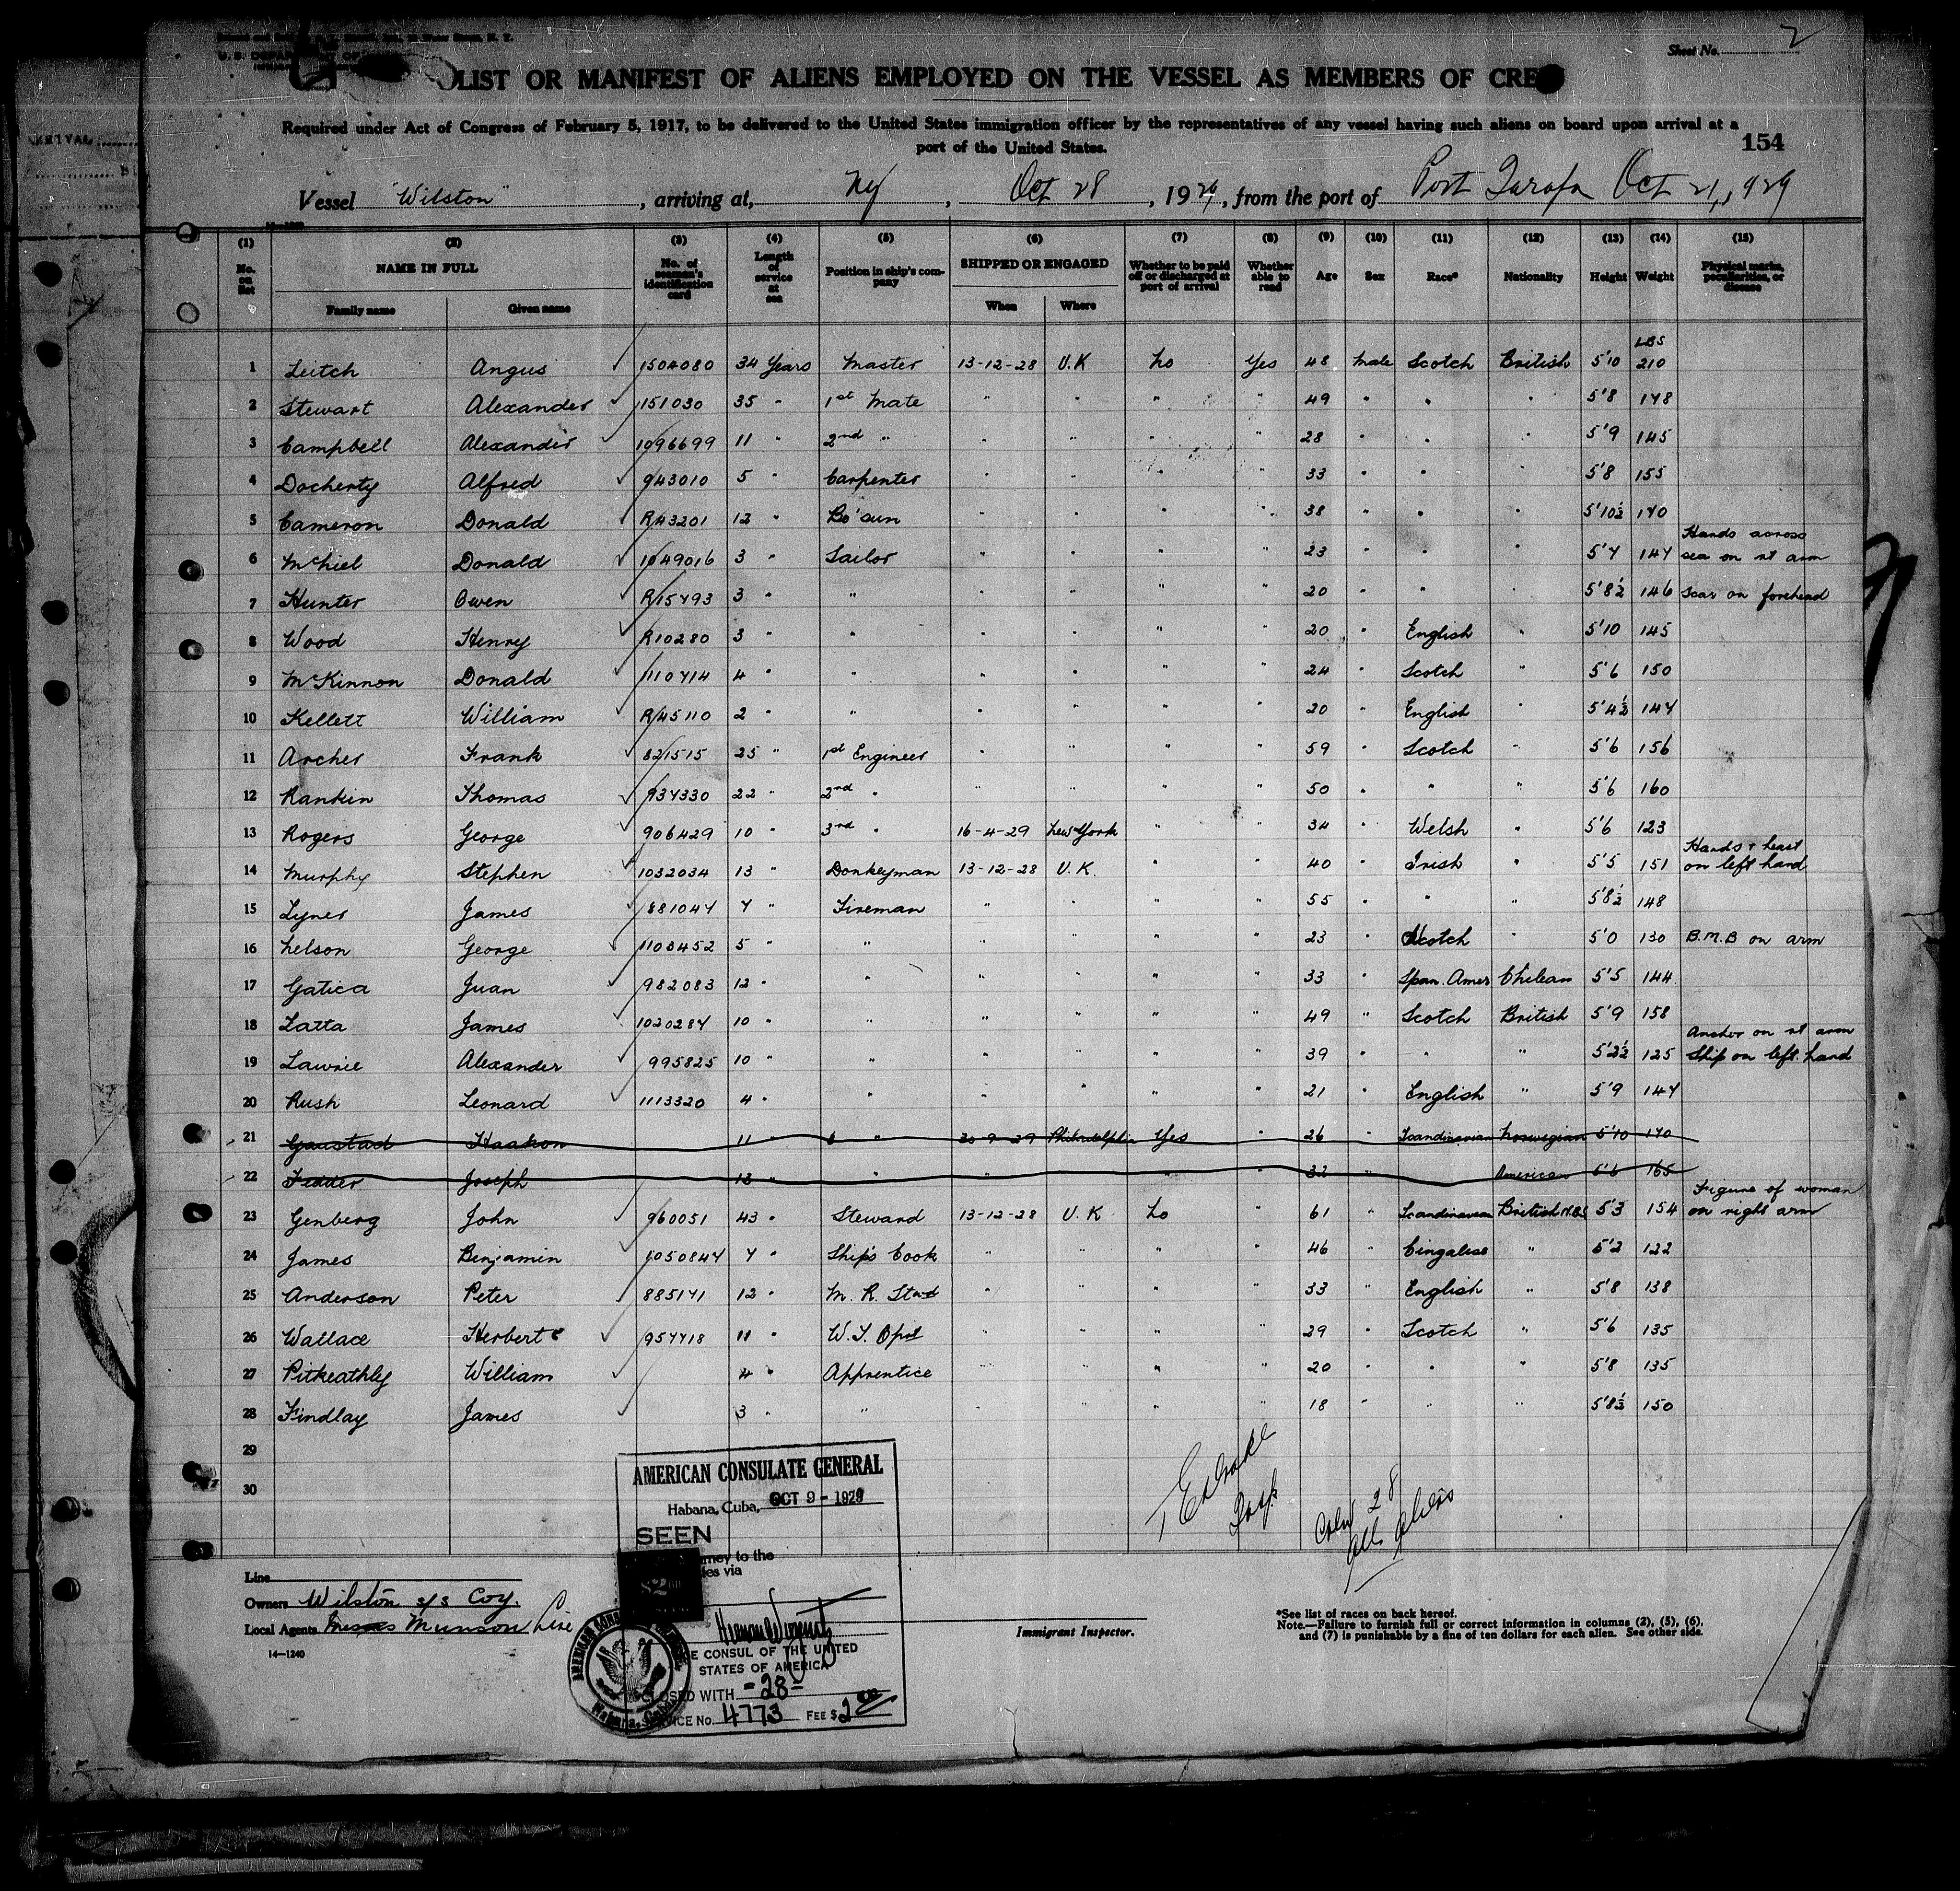 Sheet No. 2
LIST OR MANIFEST OF ALIENS EMPLOYED ON THE VESSEL AS MEMBERS OF CRE
Required under Act of Congress of February 5, 1917, to be delivered to the United States immigration officer by the representatives of any vessel having such aliens on board upon arrival at a
port of the United States.
154
Vessel "Wilston", arriving at, NY, Oct 28, 1929, from the port of Port Tarafa Oct 21, 1929
(1) (2) (3) (4) (5) (6) (7) (8) (9) (10) (11) (12) (13) (14) (15)
No. on list NAME IN FULL No. of seaman's identification card Length of service at sea Position in ship's company SHIPPED OR ENGAGED Whether to be paid off or discharged at port of arrival Whether able to read Age Sex Race* Nationality Height Weight Physical marks, peculiarities, or disease
Family name Given name When Where
LBS
1 Leitch Angus 1504080 34 Years Master 13-12-28 U.K No Yes 48 Male Scotch British 5'10 210
2 Stewart Alexander 151030 35 " 1st Mate " " " " 49 " " " 5'8 178
3 Campbell Alexander 1096699 11 " 2nd " " " " " 28 " " " 5'9 145
4 Docherty Alfred 943010 5 " Carpenter " " " " 33 " " " 5'8 155
5 Cameron Donald R43201 12 " Bo'sun " " " " 38 " " " 5'10½ 170
6 McNiel Donald 1049016 3 " Sailor " " " " 23 " " " 5'7 147 Hands across sea on rt arm
7 Hunter Owen R15793 3 " " " " " " 20 " " " 5'8½ 146 Scar on forehead
8 Wood Henry R10280 3 " " " " " " 20 " English " 5'10 145
9 McKinnon Donald 1110714 4 " " " " " " 24 " Scotch " 5'6 150
10 Kellett William R45110 2 " " " " " " 20 " English " 5'4½ 147
11 Archer Frank 821515 25 " 1st Engineer " " " " 59 " Scotch " 5'6 156
12 Rankin Thomas 937330 22 " 2nd " " " " " 50 " " " 5'6 160
13 Rogers George 906429 10 " 3rd " 16-4-29 New York " " 34 " Welsh " 5'6 123
14 Murphy Stephen 1032034 13 " Donkeyman 13-12-28 U.K. " " 40 " Irish " 5'5 151 Hands & heart on left hand
15 Lyner James 881047 7 " Fireman " " " " 55 " " " 5'8½ 148
16 Nelson George 1103452 5 " " " " " " 23 " Scotch " 5'0 130 B.M.B on arm
17 Gatica Juan 982083 12 " " " " " " 33 " Span. Amer Chilean 5'5 144
18 Latta James 1020287 10 " " " " " " 49 " Scotch British 5'9 158
19 Lawrie Alexander 995825 10 " " " " " " 39 " " " 5'2½ 125 Anchor on rt arm Ship on left hand
20 Rush Leonard 1113320 4 " " " " " " 21 " English " 5'9 147
21 Gaustad Haakon 11 " " 30-9-29 Philadelphia Yes " 26 " Scandinavian Norwegian 5'10 170
22 Fedder Joseph 13 " " " " " 32 " American 5'6 165
23 Genberg John 960051 43 " Steward 13-12-28 U.K No " 61 " Scandinavian British 5'3 154 Figure of woman on right arm
24 James Benjamin 1050847 7 " Ship's Cook " " " " 46 " Cingalese " 5'2 122
25 Anderson Peter 885171 12 " M. R. Std " " " " 33 " English " 5'8 138
26 Wallace Herbert 957718 11 " W.T. Opr " " " " 29 " Scotch " 5'6 135
27 Pitkeathly William 4 " Apprentice " " " " 20 " " " 5'8 135
28 Findlay James 3 " " " " " " 18 " " " 5'8½ 150
29
30
AMERICAN CONSULATE GENERAL
Habana, Cuba, OCT 9 - 1929
SEEN
CONSUL OF THE UNITED
STATES OF AMERICA
CLOSED WITH -28-
SERVICE No. 4773 FEE $2
28
All Aliens
Line
Owners Wilston s/s Coy.
Local Agents Munson Line
14—1240
Immigrant Inspector.
*See list of races on back hereof.
Note.—Failure to furnish full or correct information in columns (2), (5), (6),
and (7) is punishable by a fine of ten dollars for each alien. See other side.